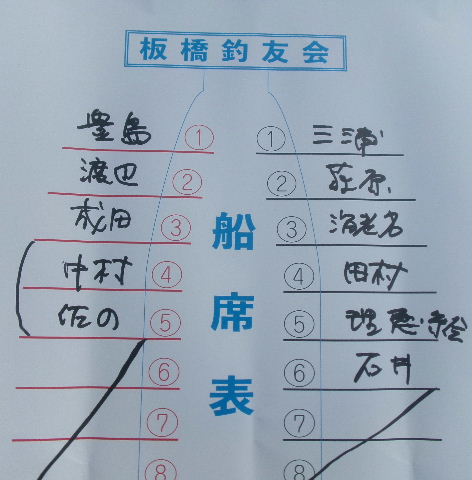 板橋釣友会
船席表
豊島 ①
渡辺 ②
松田 ③
中村 ④
佐の ⑤
⑥
⑦
⑧
① 三浦
② 荘原
③ 海老名
④ 田村
⑤
⑥ 石井
⑦
⑧